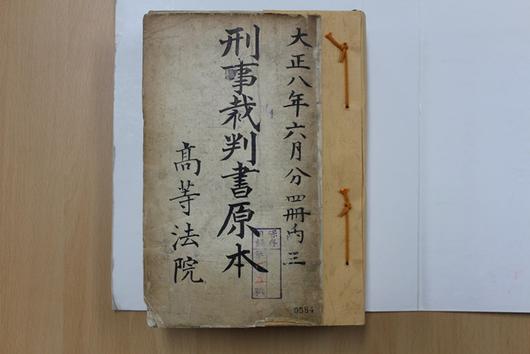 大正八年六月分四冊內三
刑事裁判書原本
高等法院
0584